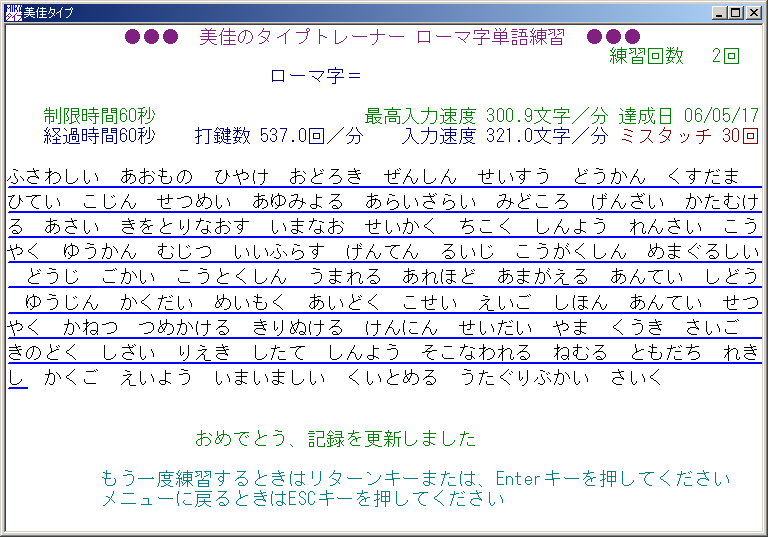 美佳タイプ
●●● 美佳のタイプトレーナー ローマ字単語練習 ●●●
練習回数 2回
ローマ字＝
制限時間60秒 最高入力速度 300.9文字／分 達成日 06/05/17
経過時間60秒 打鍵数 537.0回／分 入力速度 321.0文字／分 ミスタッチ 30回
ふさわしい あおもの ひやけ おどろき ぜんしん せいすう どうかん くすだま
ひてい こじん せつめい あゆみよる あらいざらい みどころ げんざい かたむけ
る あさい きをとりなおす いまなお せいかく ちこく しんよう れんさい こう
やく ゆうかん むじつ いいふらす げんてん るいじ こうがくしん めまぐるしい
どうじ ごかい こうとくしん うまれる あれほど あまがえる あんてい しどう
ゆうじん かくだい めいもく あいどく こせい えいご しほん あんてい せつ
やく かねつ つめかける きりぬける けんにん せいだい やま くうき さいご
きのどく しざい りえき したて しんよう そこなわれる ねむる ともだち れき
し かくご えいよう いまいましい くいとめる うたぐりぶかい さいく
おめでとう、記録を更新しました
もう一度練習するときはリターンキーまたは、Enterキーを押してください
メニューに戻るときはESCキーを押してください